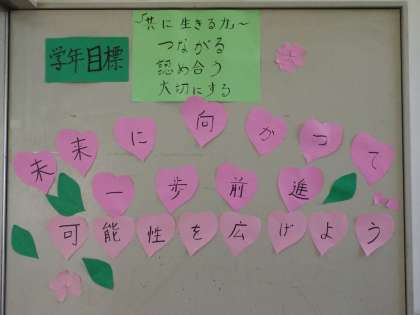 学年目標
~共に生きる力~
つながる
認め合う
大切にする
未来に向かって
一歩前進
可能性を広げよう